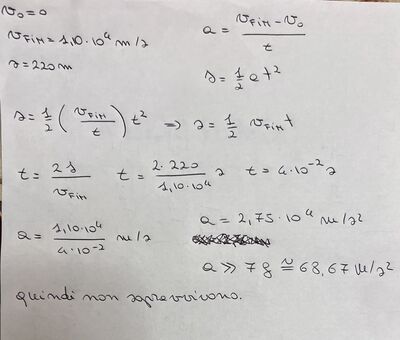 v₀ = 0
a = (v_FIN - v₀) / t
v_FIN = 1,10·10⁴ m/s
s = 220 m
s = 1/2 a t²
s = 1/2 (v_FIN / t) t² => s = 1/2 v_FIN t
t = 2s / v_FIN t = 2·220 / 1,10·10⁴ s t = 4·10⁻² s
a = 1,10·10⁴ / 4·10⁻² m/s a = 2,75·10⁴ m/s²
a >> 7g ≅ 68,67 m/s²
quindi non sopravvivono.